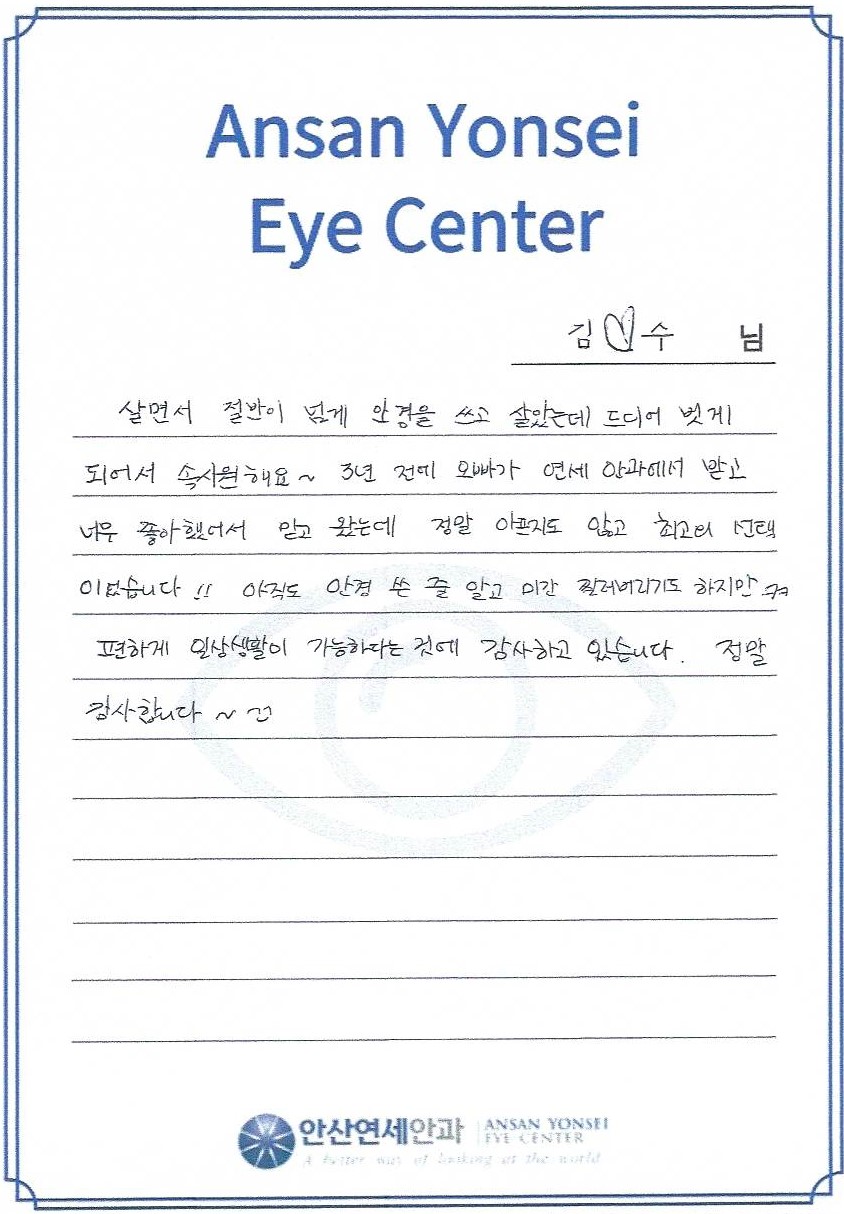 Ansan Yonsei
Eye Center
김♡수 님
살면서 절반이 넘게 안경을 쓰고 살았는데 드디어 벗게
되어서 속시원해요~ 3년 전에 오빠가 연세 안과에서 받고
너무 좋아했어서 믿고 왔는데 정말 아프지도 않고 최고의 선택
이었습니다!! 아직도 안경 쓴 줄 알고 미간 찔러버리기도 하지만 ㅋㅋ
편하게 일상생활이 가능하다는 것에 감사하고 있습니다. 정말
감사합니다~
안산연세안과 ANSAN YONSEI
EYE CENTER
A better way of looking at the world